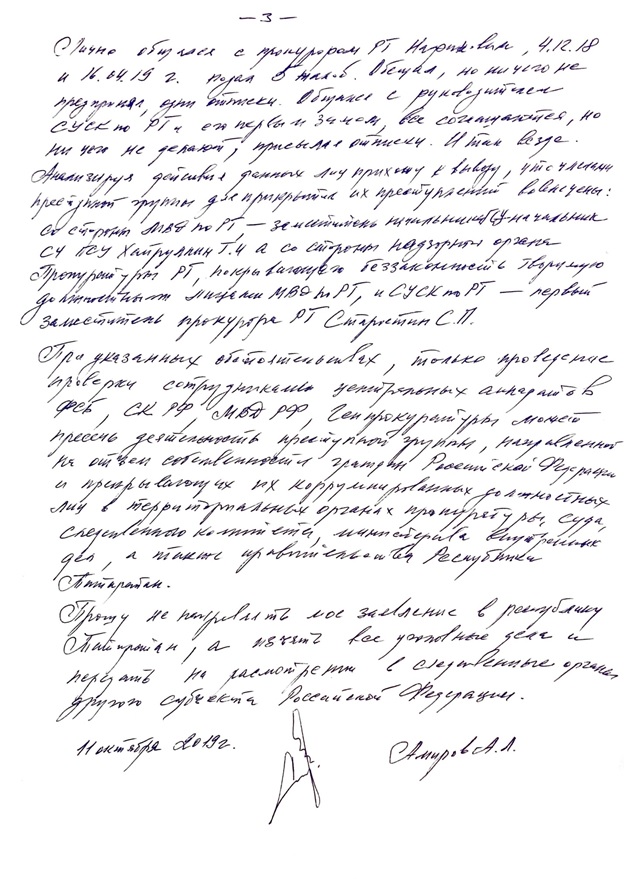 — 3 —
Лично общался с прокурором РТ Нафиковым, 4.12.18
и 16.04.19 г. подал 5 жалоб. Обещал, но ничего не
предпринял, одни отписки. Общался с руководителем
СУСК по РТ и его первым замом, все соглашаются, но
ни чего не делают, присылая отписки. И так везде.
Анализируя действия данных лиц прихожу к выводу, что членами
преступной группы для прикрытия их преступлений вовлечены:
со стороны МВД по РТ — заместитель начальника начальник
СЧ ГСУ Хайруллин Т.Ч а со стороны надзорного органа
Прокуратуры РТ, покрывающего беззаконность творимую
должностными лицами МВД по РТ, и СУСК по РТ — первый
заместитель прокурора РТ Старостин С.П.
При указанных обстоятельствах, только проведение
проверки сотрудниками центральных аппаратов
ФСБ, СК РФ, МВД РФ, Генпрокуратуры может
пресечь деятельность преступной группы, направленной
на отъем собственности граждан Российской Федерации
и прикрывающих их коррумпированных должностных
лиц в территориальных органах прокуратуры, суда,
следственного комитета, министерства внутренних
дел, а также правительства Республики
Татарстан.
Прошу не направлять мое заявление в республику
Татарстан, а изъять все уголовные дела и
передать на расмотрение в следственные органы
другого субъекта Российской Федерации.
11 октября 2019г. Амиров А.Л.